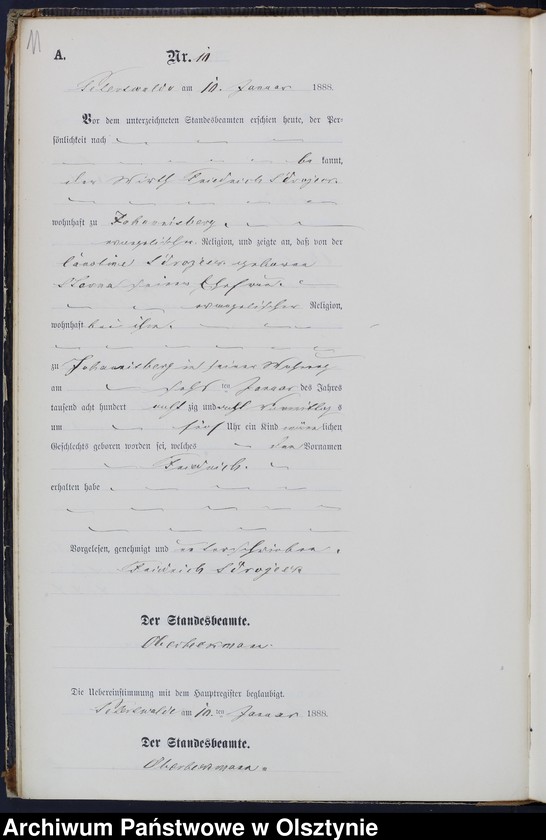 11
A. Nr. 10
am 10. Januar 1888.
Vor dem unterzeichneten Standesbeamten erschien heute, der Per-
sönlichkeit nach
be kannt,
der Wirth Friedrich
wohnhaft zu Johannisberg
evangelischer Religion, und zeigte an, daß von der
Caroline geborenen
seiner Ehefrau
evangelischer Religion,
wohnhaft bei ihm
zu Johannisberg in seiner Wohnung
am ten Januar des Jahres
tausend acht hundert acht zig und acht Vormittag s
um fünf Uhr ein Kind männ lichen
Geschlechts geboren worden sei, welches den Vornamen
Friedrich.
erhalten habe
Vorgelesen, genehmigt und unterschrieben.
Friedrich
Der Standesbeamte.
Die Uebereinstimmung mit dem Hauptregister beglaubigt.
am 10. ten Januar 1888.
Der Standesbeamte.
Archiwum Państwowe w Olsztynie